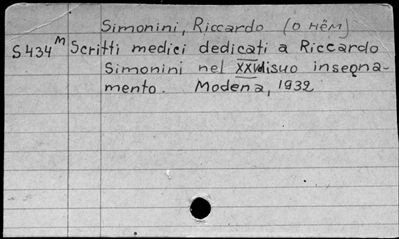 Simonini, Riccardo (о нём)
S434м Scritti medici dedicati a Riccardo
Simonini nel XXV di suo insegna-
mento. Modena, 1932